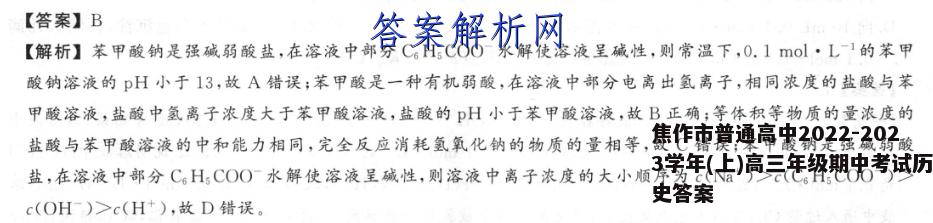 【答案】B
答案解析网
【解析】苯甲酸钠是强碱弱酸盐,在溶液中部分 C₆H₅COO⁻ 水解使溶液呈碱性,则常温下,0.1 mol·L⁻¹的苯甲
酸钠溶液的 pH 小于 13,故 A 错误;苯甲酸是一种有机弱酸,在溶液中部分电离出氢离子,相同浓度的盐酸与苯
甲酸溶液,盐酸中氢离子浓度大于苯甲酸溶液,盐酸的 pH 小于苯甲酸溶液,故 B 正确;等体积等物质的量浓度的
盐酸与苯甲酸溶液的中和能力相同,完全反应消耗氢氧化钠的物质的量相等,故 C 错误;苯甲酸钠是强碱弱酸
盐,在溶液中部分 C₆H₅COO⁻ 水解使溶液呈碱性,则溶液中离子浓度的大小顺序为 c(Na⁺)>c(C₆H₅COO⁻)>
c(OH⁻)>c(H⁺),故 D 错误。
焦作市普通高中2022-202
3学年(上)高三年级期中考试历
史答案